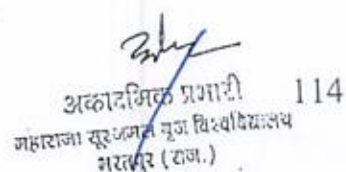 अकादमिक प्रभारी 114
महाराजा सूरजमल बृज विश्वविद्यालय
भरतपुर (राज.)